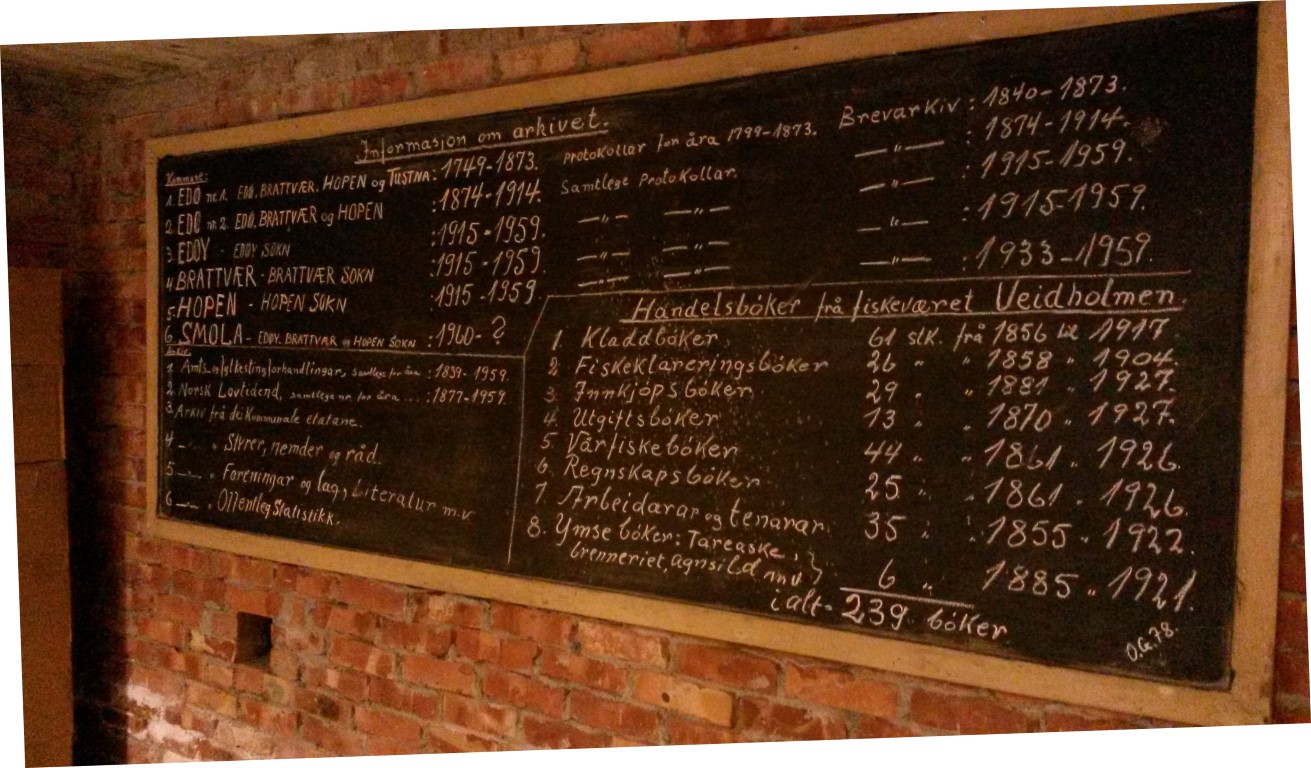 Informasjon om arkivet.
Kommune:
1. EDØ nr.1. EDØ, BRATTVÆR, HOPEN og TUSTNA: 1749-1873. Protokollar for åra 1799-1873. Brevarkiv: 1840-1873.
2. EDØ nr.2. EDØ, BRATTVÆR og HOPEN :1874-1914. Samtlege Protokollar. —"— : 1874-1914.
3. EDØY - EDØY SOKN :1915-1959. —"— —"— —"— : 1915-1959.
4. BRATTVÆR - BRATTVÆR SOKN :1915-1959. —"— —"— —"— : 1915-1959.
5. HOPEN - HOPEN SOKN :1915-1959. —"— —"— —"— : 1933-1959.
6. SMØLA - EDØY, BRATTVÆR og HOPEN SOKN : 1960- ?
Arkiv:
1. Amts og fylkestingforhandlingar, samtlege for åra : 1839-1959.
2. Norsk Lovtidend, samtlege nr. for åra ... : 1877-1959.
3. Arkiv frå dei Kommunale etatane.
4 —"— " Styrer, nemder og råd.
5 —"— " Foreningar og lag, Literatur m.v
6 —"— " Offentleg Statistikk.
Handelsbøker frå fiskeværet Veidholmen.
1. Kladdbøker, 61 stk. frå 1856 til 1917
2. Fiskeklareringsbøker 26 " " 1858 " 1904.
3. Innkjøpsbøker 29 " " 1881 " 1927.
4. Utgiftsbøker 13 " " 1870 " 1927.
5 Vårfiskebøker 44 " " 1861 " 1926.
6. Regnskapsbøker 25 " " 1861 " 1926.
7. Arbeidarar og tenarar 35 " " 1855 " 1922.
8. Ymse bøker: Tareaske,
brenneriet, agnsild mv 6 " 1885 " 1921.
i alt = 239 bøker
O.G. 78.